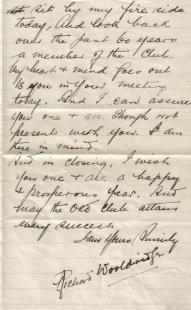 Sit by my fire side
today, And look back
over the past 60 years
a member of the Club.
my heart & mind goes out
to you in your meeting
today. And I can assure
you one & all. Though not
present with you. I am
there in mind.
And in closing, I wish
you one & all a happy
& prosperous year. And
may the Old Club attain
every success.
Yours Sincerely
Richard Wooldridge